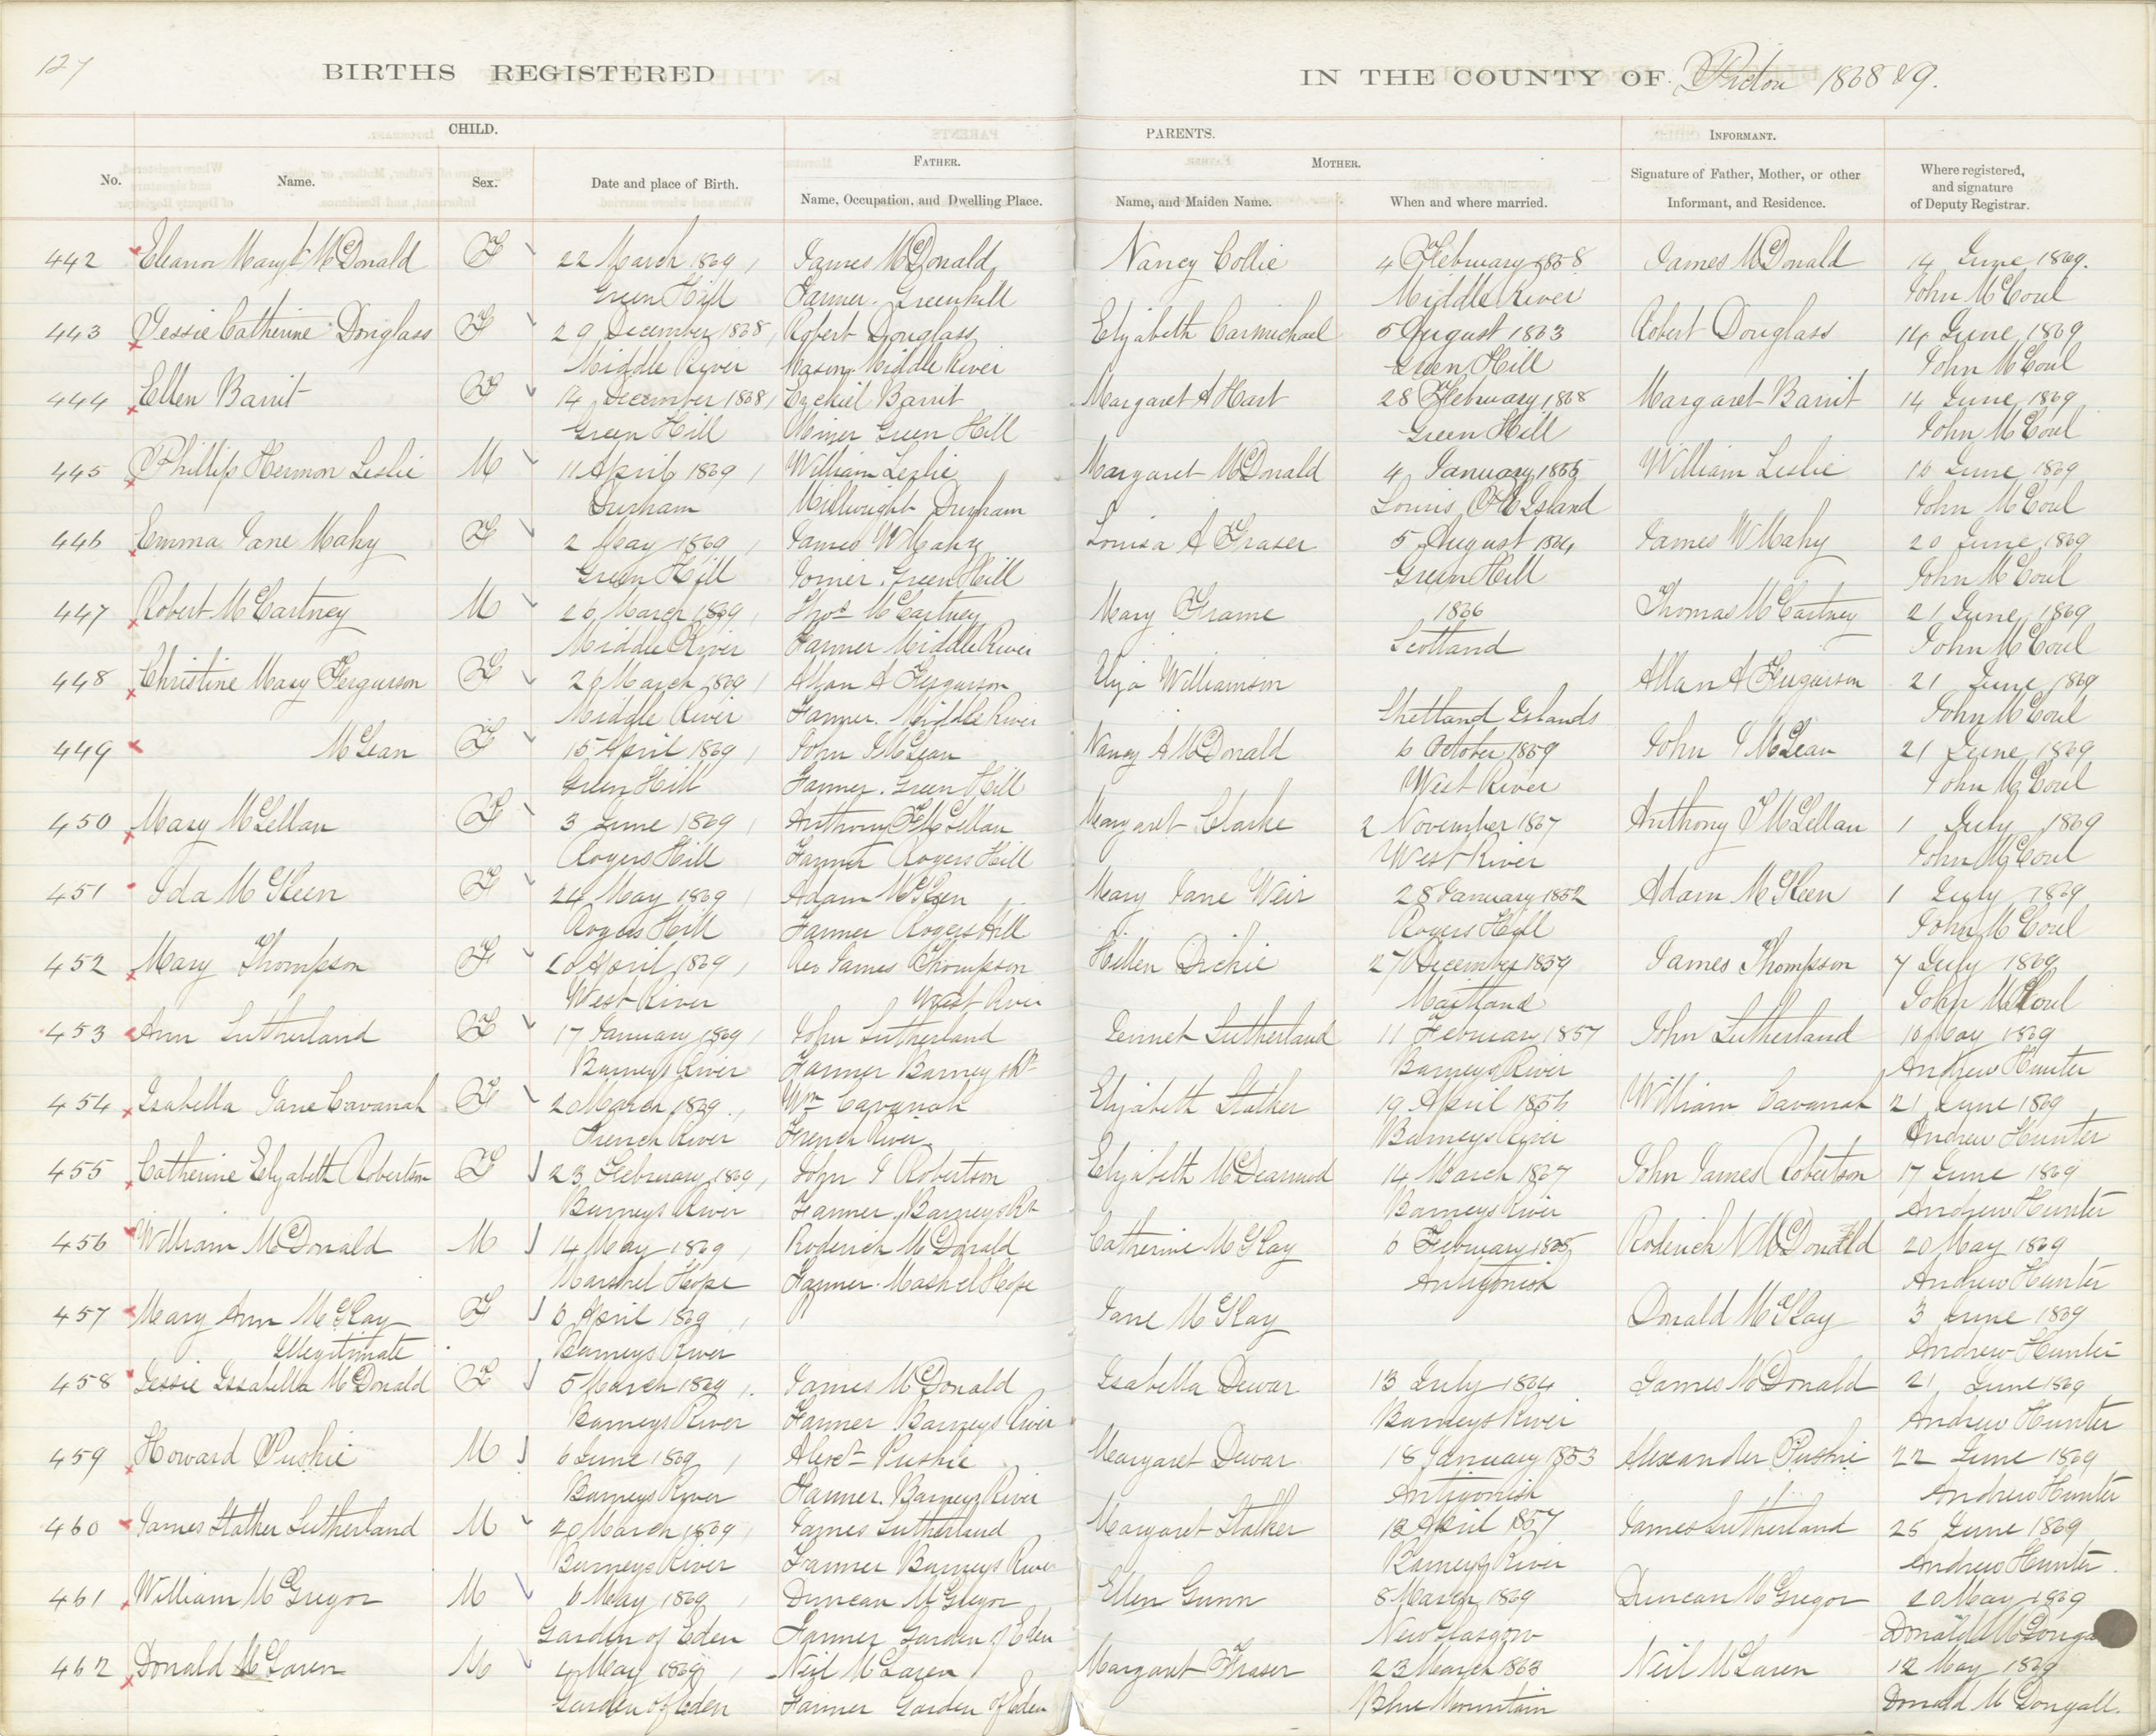 127
BIRTHS REGISTERED IN THE COUNTY OF Pictou 1868 & 9.
CHILD. PARENTS. INFORMANT.
FATHER. MOTHER.
No. Name. Sex. Date and place of Birth. Name, Occupation, and Dwelling Place. Name, and Maiden Name. When and where married. Signature of Father, Mother, or other Informant, and Residence. Where registered, and signature of Deputy Registrar.
442 Eleanor Mary McDonald F 22 March 1869 James McDonald Nancy Collie 4 February 1858 James McDonald 14 June 1869.
Green Hill Farmer. Greenhill Middle River John McCoul
443 Jessie Catherine Douglass F 29 December 1868 Robert Douglass Elizabeth Carmichael 5 August 1863 Robert Douglass 14 June 1869
Middle River Mason Middle River Green Hill John McCoul
444 Ellen Barrit F 14 December 1868 Ezekiel Barrit Margaret A Hart 28 February 1868 Margaret Barrit 14 June 1869
Green Hill Miner Green Hill Green Hill John McCoul
445 Phillip Hermon Leslie M 11 April 1869 William Leslie Margaret McDonald 4 January 1855 William Leslie 16 June 1869
Durham Millwright Durham Island John McCoul
446 Emma Jane Mahy F 2 May 1869 James W Mahy Louisa A Fraser 5 August 1864 James W Mahy 20 June 1869
Green Hill Joiner. Green Hill Green Hill John McCoul
447 Robert McCartney M 26 March 1869 Thos McCartney Mary Frame 1866 Thomas McCartney 21 June 1869
Middle River Farmer Middle River Scotland John McCoul
448 Christine Mary Fergurson F 26 March 1869 Allan A Fergurson Williamson Allan A Fergurson 21 June 1869
Middle River Farmer. Middle River Shetland Islands John McCoul
449 McLean F 15 April 1869 John J McLean Nancy A McDonald 6 October 1859 John J McLean 21 June 1869
Green Hill Farmer. Green Hill West River John McCoul
450 Mary McLellan F 3 June 1869 Anthony McLellan Margaret Clarke 2 November 1867 Anthony McLellan 1 July 1869
Rogers Hill Farmer Rogers Hill West River John McCoul
451 Ida McKeen F 24 May 1869 Adam McKeen Mary Jane Weir 28 January 1852 Adam McKeen 1 July 1869
Rogers Hill Farmer Rogers Hill Rogers Hill John McCoul
452 Mary Thompson F 20 April 1869 Rev James Thompson Hellen Dickie 27 December 1859 James Thompson 7 July 1869
West River West River Maitland John McCoul
453 Ann Sutherland F 17 January 1869 John Sutherland Jennet Sutherland 11 February 1857 John Sutherland 10 May 1869
Barneys River Farmer Barneys Rr Barneys River Andrew Hunter
454 Isabella Jane Cavanah F 20 March 1869 Wm Cavanah Elizabeth Stalker 19 April 1856 William Cavanah 21 June 1869
French River French River Barneys River Andrew Hunter
455 Catherine Elizabeth Robertson F 23 February 1869 John J Robertson Elizabeth McDearmid 14 March 1867 John James Robertson 17 June 1869
Barneys River Farmer. Barneys Rr Barneys River Andrew Hunter
456 William McDonald M 14 May 1869 Roderick McDonald Catherine McKay 6 February 1865 Roderick McDonald 20 May 1869
Marshel Hope Farmer. Mashel Hope Antigonish Andrew Hunter
457 Mary Ann McKay F 6 April 1869 Jane McKay Donald McKay 3 June 1869
Illegitimate Barneys River Andrew Hunter
458 Jessie Issabella McDonald F 5 March 1869 James McDonald Isabella Dewar 13 July 1864 James McDonald 21 June 1869
Barneys River Farmer Barneys River Barneys River Andrew Hunter
459 Howard Pushie M 6 June 1869 Alexr Pushie Margaret Dewar 18 January 1853 Alexander Pushie 22 June 1869
Barneys River Farmer. Barneys River Antigonish Andrew Hunter
460 James Stalker Sutherland M 20 March 1869 James Sutherland Margaret Stalker April 1857 James Sutherland 25 June 1869
Barneys River Farmer Barneys River Barneys River Andrew Hunter.
461 William McGregor M 6 May 1869 Duncan McGregor Ellen Gunn 8 March 1869 Duncan McGregor 20 May 1869
Garden of Eden Farmer Garden of Eden New Glasgow Donald McDouga
462 Donald McLaren M 4 May 1869 Neil McLaren Margaret Fraser 23 March 1863 Neil McLaren 12 May 1869
Garden of Eden Farmer Garden of Eden Blue Mountain Donald McDougall.